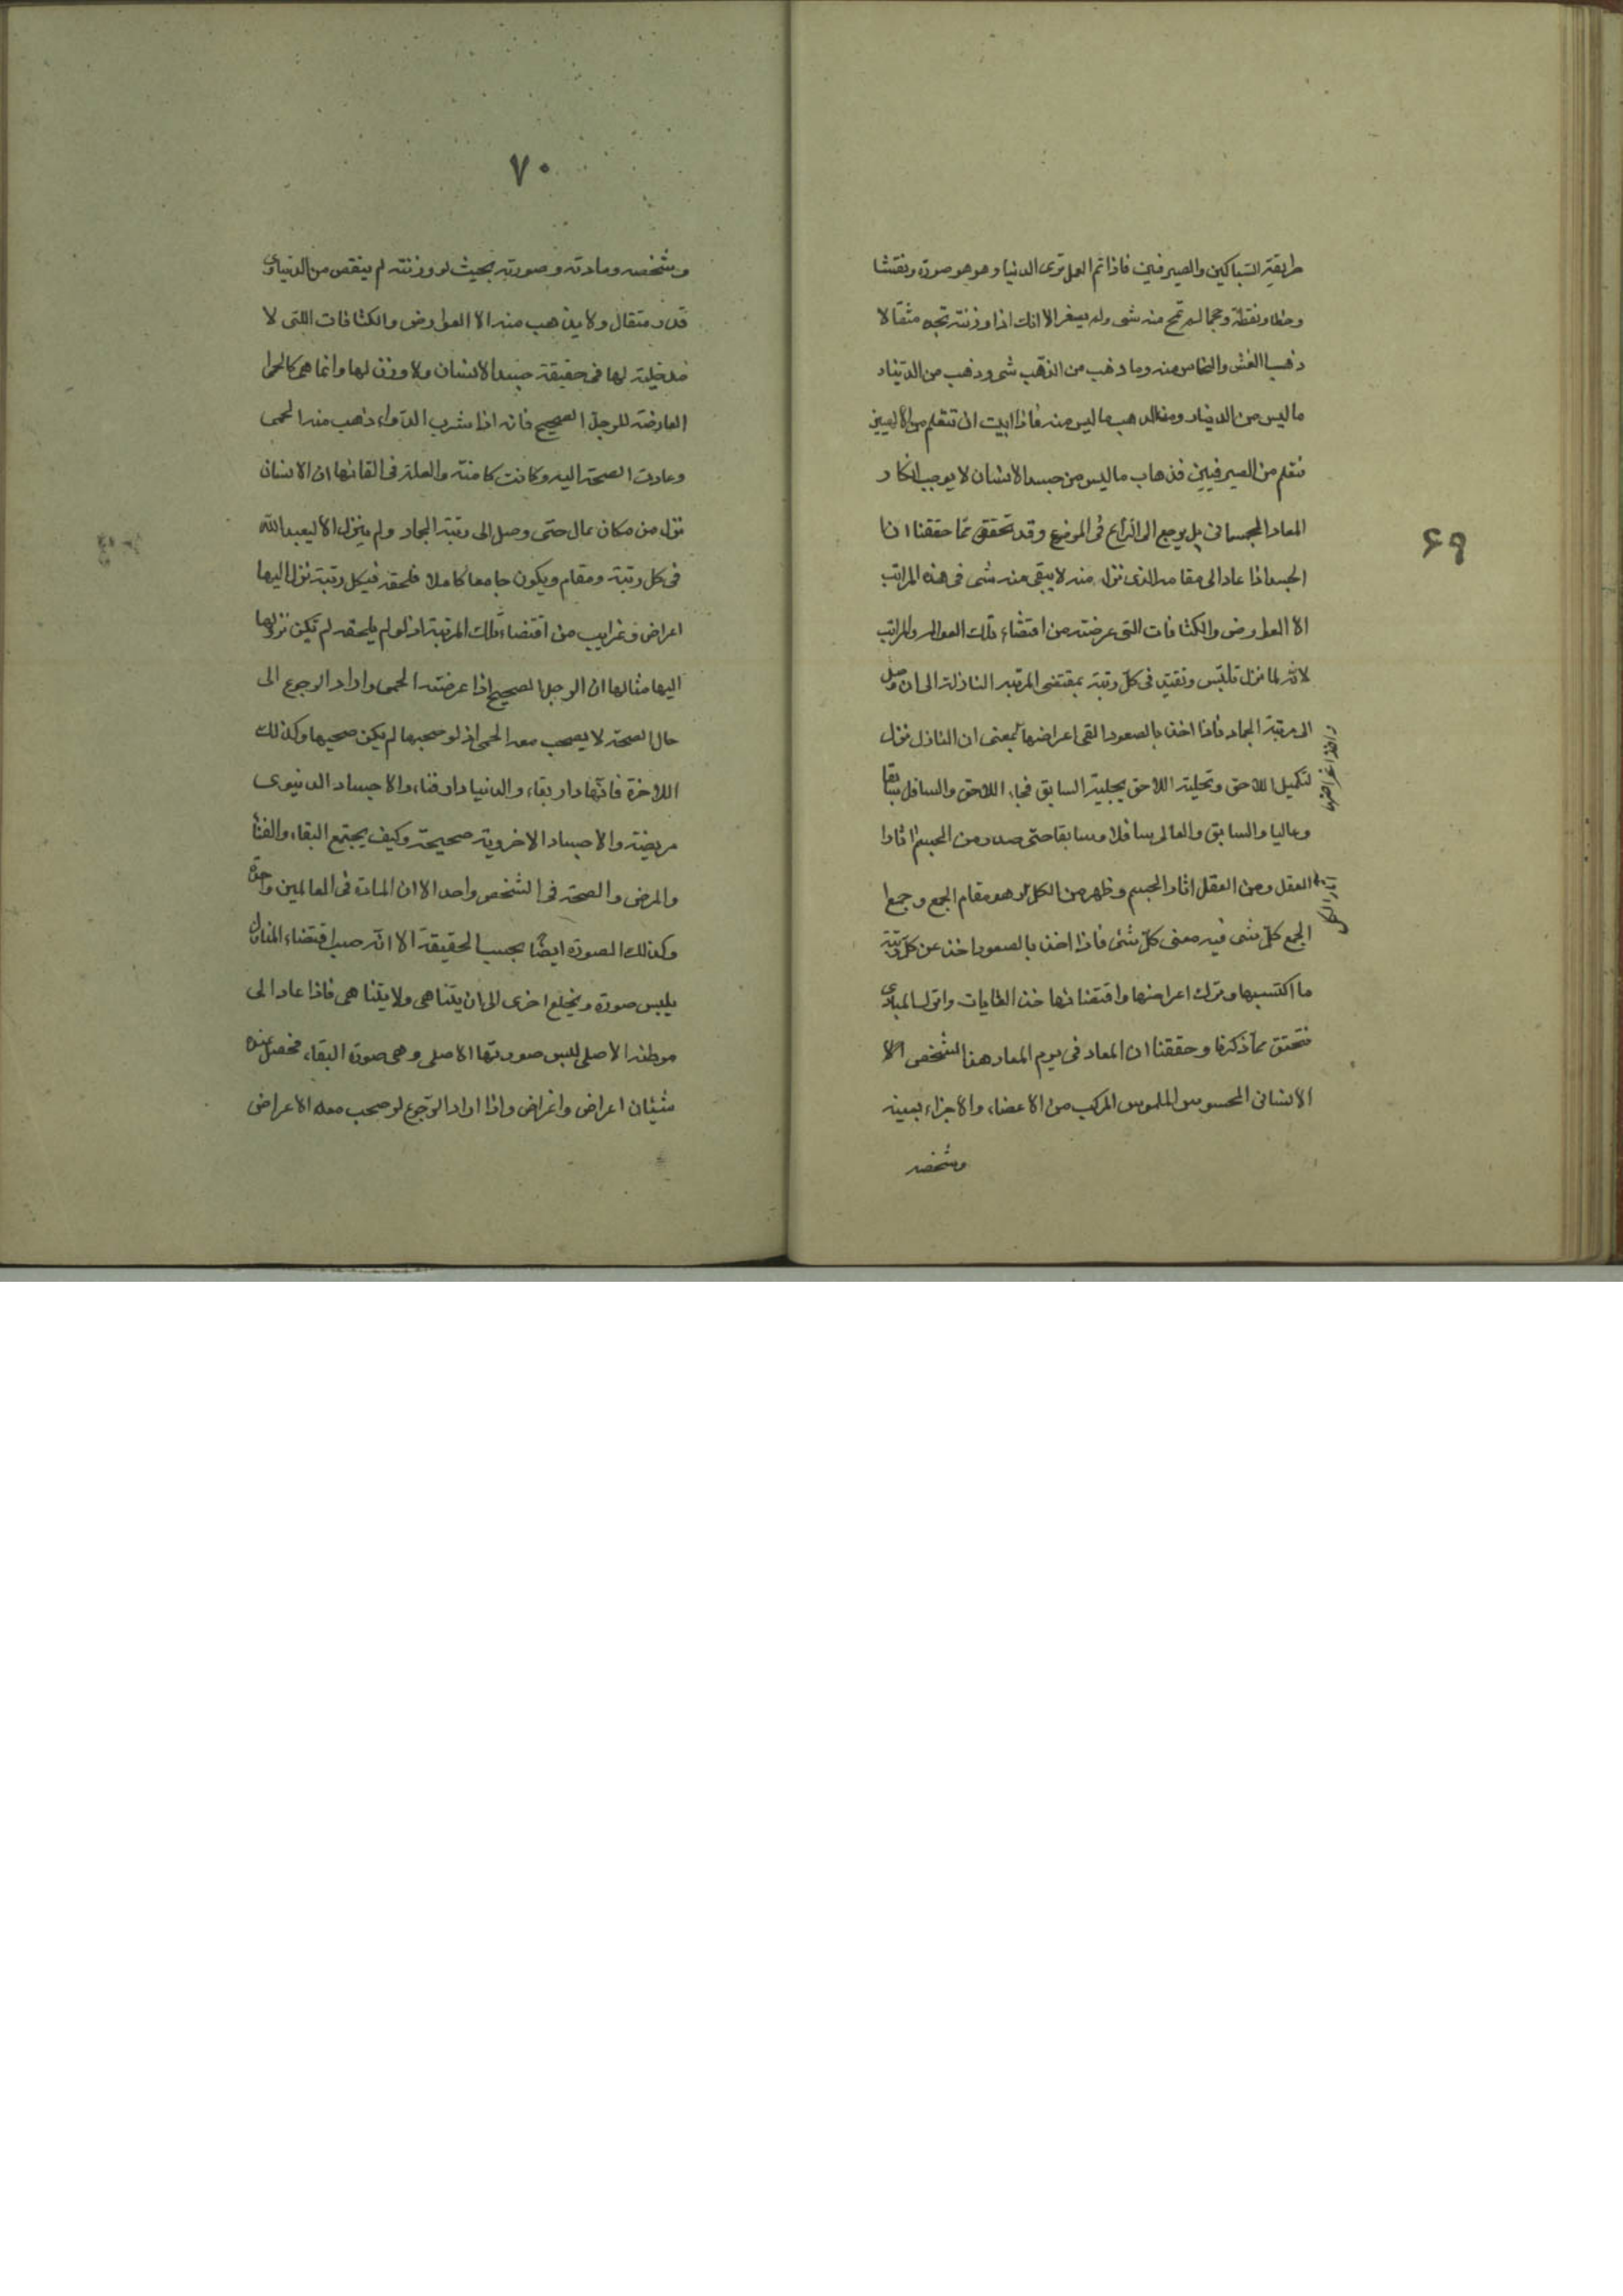 ۶۹
طريقة السباكين والصيرفيين فاذا تم العمل ترى الدنيا وهو هو صورة ونقشا
وخطا ونقطة وحجما لم تمح منه شى ولم يصغر الا انك اذا وزنته تجده مثقالا
ذهب الغش والنحاس منه وما ذهب من الذهب شى وذهب من الدينار
ما ليس من الدينار ومن الذهب ما ليس منه فاذا ابيت ان تتعلم من
فتعلم من الصيرفيين فذهاب ما ليس من جسد الانسان لا يوجب انكار
المعاد الجسمانى بل يرجع الى الرأع فى الموضع وقد تحقق مما حققنا ان
الجسد اذا عاد الى مقامه الذى نزل منه لا يبقى منه شى فى هذه المراتب
الا العوارض والكثافات التى عرضته من اقتضاء تلك العوالم والمراتب
لانه لما نزل تلبس وتقيد فى كل رتبة بمقتضى المرتبه النازلة الى ان وصل
الى مرتبة الجماد فاذا اخذ بالصعود القى اعراضها بمعنى ان النازل نزل
لتكميل اللاحق وتحلية اللاحق بحلية السابق فجاء اللاحق والسافل سابقا
وعاليا والسابق والعالى سافلا وسابقا حتى صدر من الجسم اثار
العقل ومن العقل اثار الجسم وظهر من الكل هو مقام الجمع وجمع
الجمع كل شى فيه معنى كل شئ فاذا اخذ بالصعود اخذ عن كل رتبة
ما اكتسبها وترك اعراضها واقتضائها خذ الغايات واترك المبادى
فتحقق مما ذكرنا وحققنا ان المعاد فى يوم المعاد هذا الشخص
الانسانى المحسوس الملموس المركب من الاعضاء والاجزاء بعينه
وشخصه
۷۰
وشخصه ومادته وصورته بحيث لو وزنته لم ينقص من الدنياوى
قدر مثقال ولا يذهب منه الا العوارض والكثافات اللتى لا
مدخلية لها فى حقيقة جسد الانسان ولا وزن لها وانما هى كالحمى
العارضة للرجل الصحيح فانه اذا شرب الدواء ذهب منه الحمى
وعادت الصحة اليه وكانت كامنة والعلة فى القائها ان الانسان
نزل من مكان عال حتى وصل الى رتبة الجماد ولم ينزل الا ليعبد الله
فى كل رتبة ومقام ويكون جامعا كاملا فلحقه فى كل رتبة نزل اليها
اعراض وغرايب من اقتضاء تلك المرتبة اذ لو لم يلحقه لم يكن نزولها
اليها مثالها ان الرجل الصحيح اذا عرضته الحمى واراد الرجوع الى
حال الصحة لا يصحب معه الحمى اذ لو صحبها لم يكن صحيحا وكذلك
اللاخرة فانها دار بقاء والدنيا دار فناء والاجساد الدنيوى
مريضة والاجساد الاخروية صحيحة وكيف يجتمع البقاء والفناء
والمرض والصحة فى الشخص واحد الا ان المادة فى العالمين واحدة
وكذلك الصورة ايضا بحسب الحقيقة الا انه حسب اقتضاء المنازل
يلبس صورة ويخلع اخرى الى ان يتناهى ولا يتناهى فاذا عاد الى
موطنه الاصلى لبس صورتها الاصلى وهى صورة البقاء فحصل
شيئان اعراض واغراض واذا اراد الرجوع لو صحب معه الاعراض